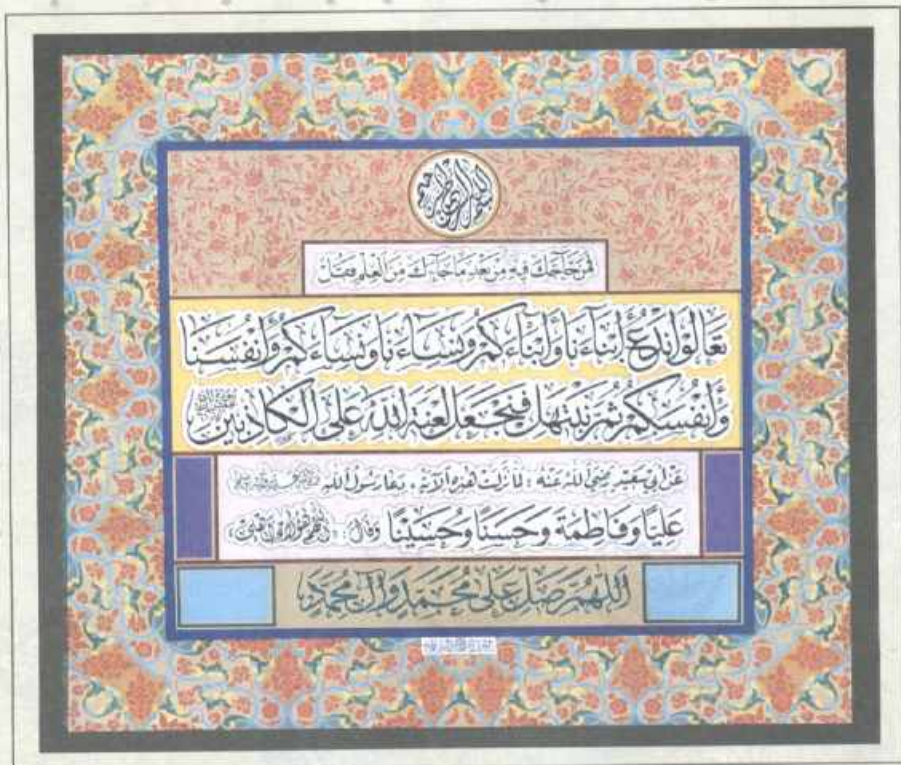 بسم الله الرحمن الرحيم
فمن حاجك فيه من بعد ما جاءك من العلم فقل
تعالوا ندع أبناءنا وأبناءكم ونساءنا ونساءكم وأنفسنا
وأنفسكم ثم نبتهل فنجعل لعنة الله على الكاذبين
عن أبي سعيد رضي الله عنه: لما نزلت هذه الآية، دعا رسول الله
عليًا وفاطمة وحسنًا وحسينًا وقال: «اللهم هؤلاء أهلي»
اللهم صل على محمد وآل محمد